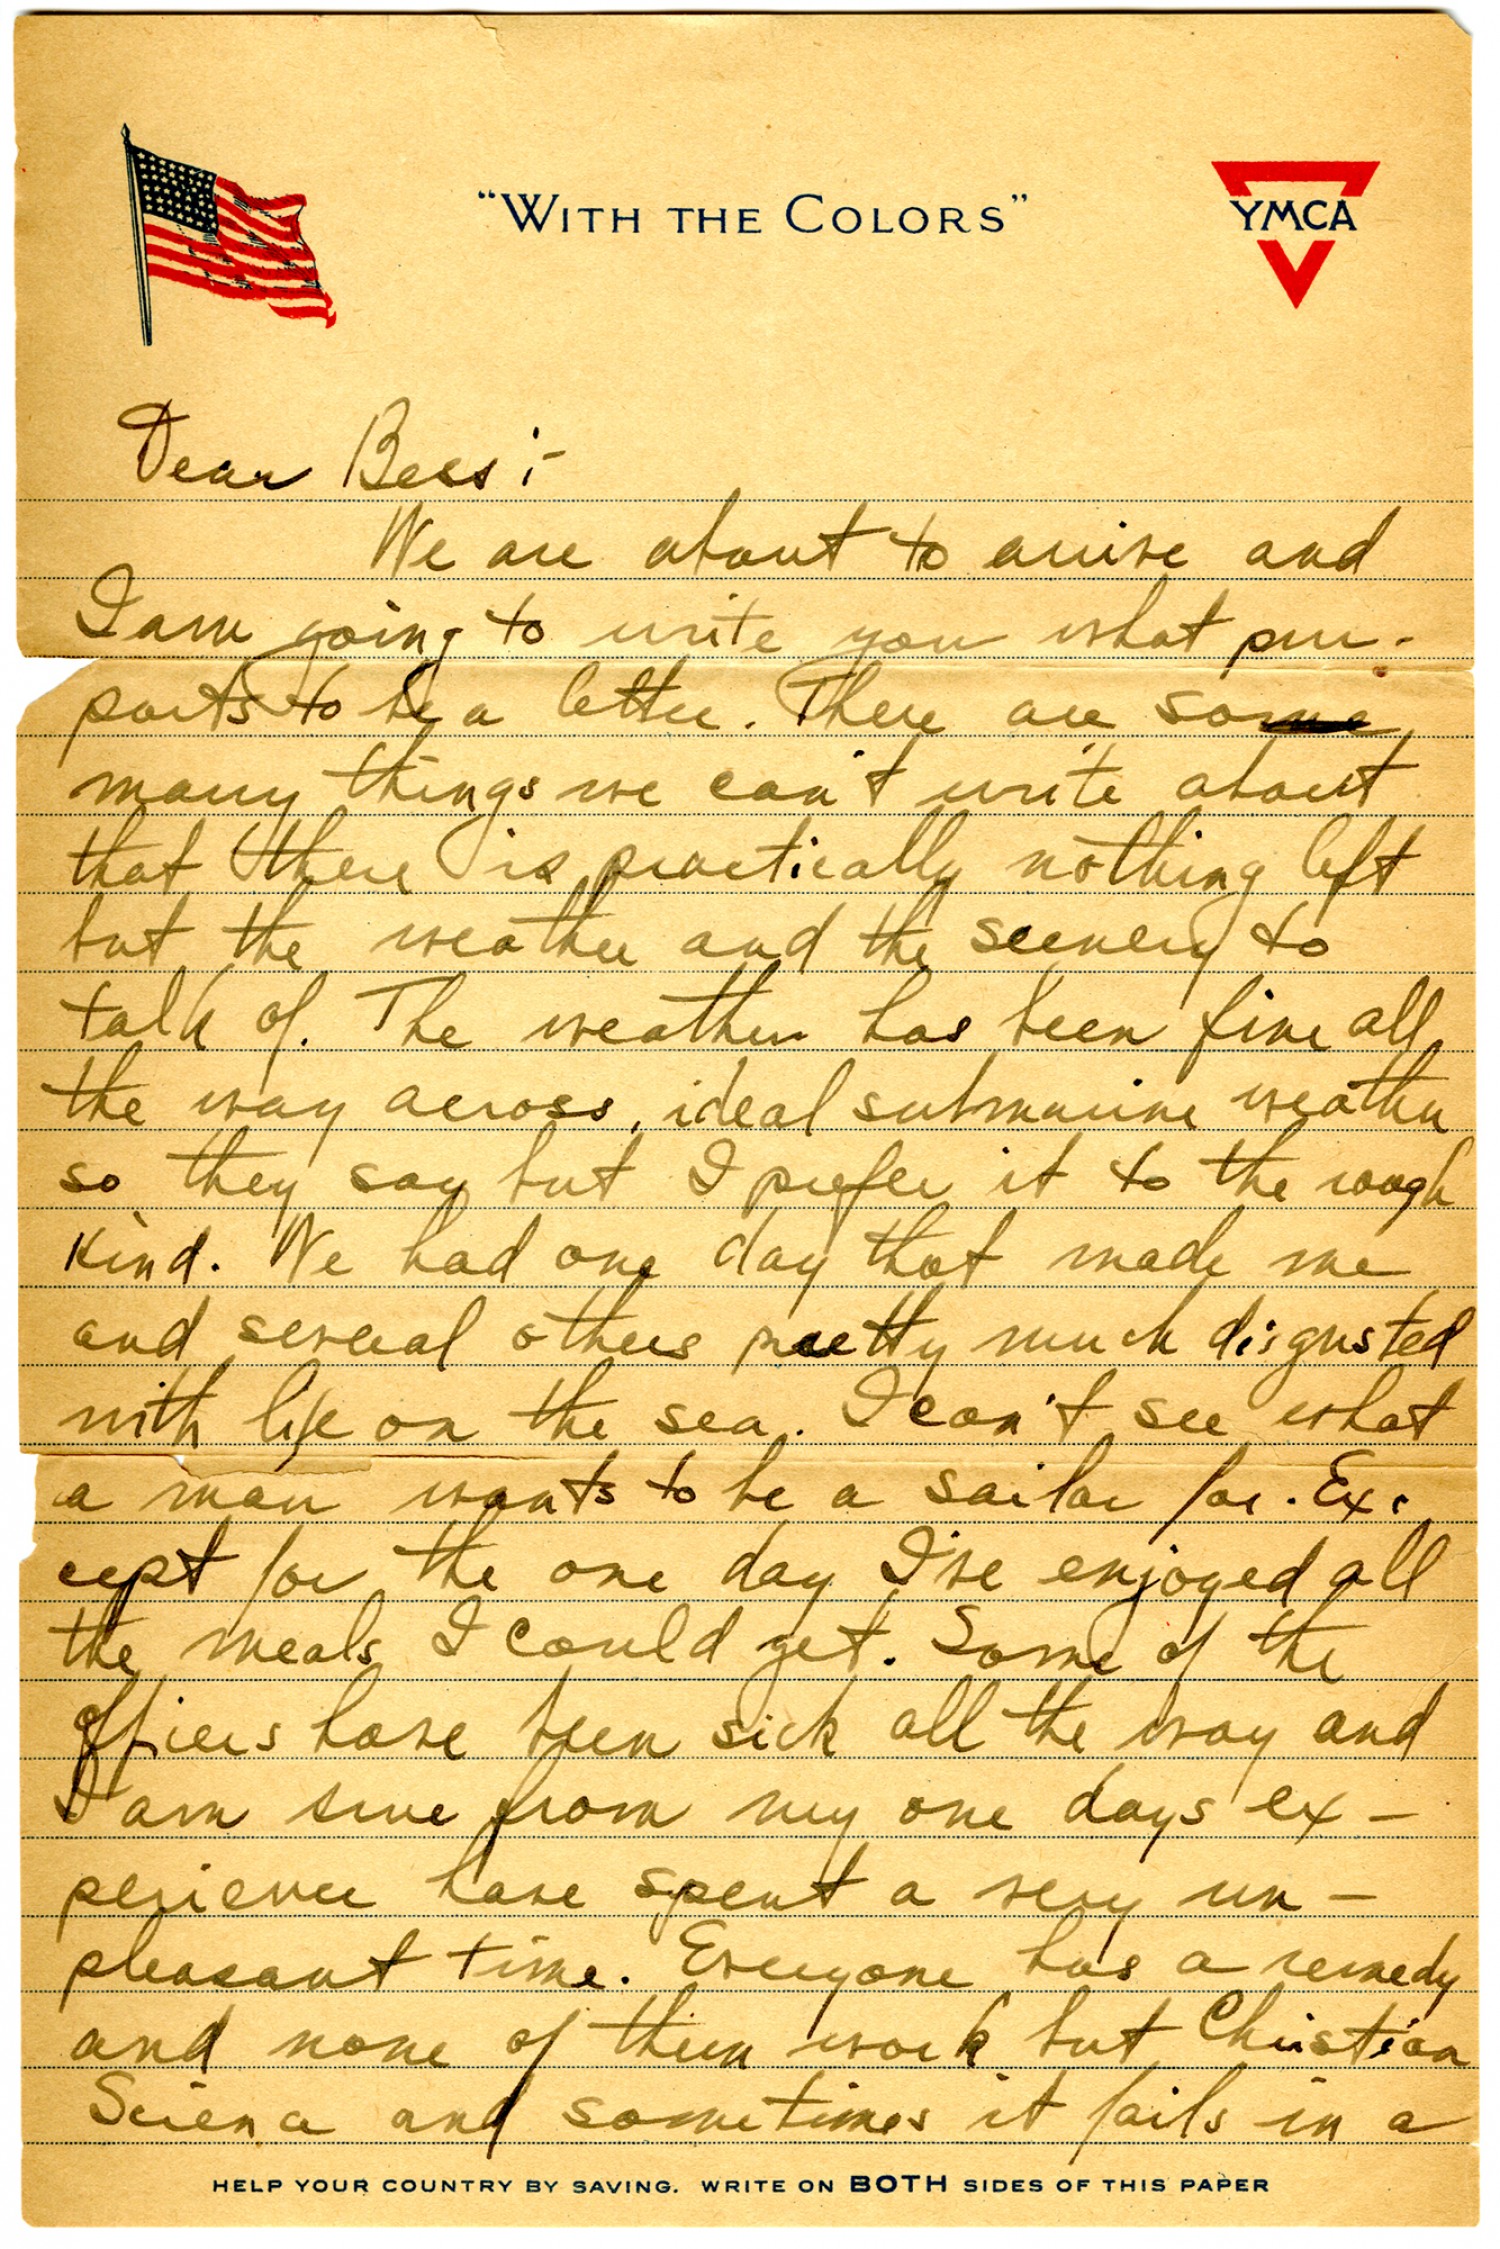 "WITH THE COLORS"
YMCA
Dear Bess:-
We are about to arrive and
I am going to write you what pur-
ports to be a letter. There are so
many things we can't write about
that there is practically nothing left
but the weather and the scenery to
talk of. The weather has been fine all
the way across, ideal submarine weather
so they say but I prefer it to the rough
kind. We had one day that made me
and several others pretty much disgusted
with life on the sea. I can't see what
a man wants to be a sailor for. Ex-
cept for the one day I've enjoyed all
the meals I could get. Some of the
officers have been sick all the way and
I am sure from my one days ex-
perience have spent a very un-
pleasant time. Everyone has a remedy
and none of them work but Christian
Science and sometimes it fails in a
HELP YOUR COUNTRY BY SAVING. WRITE ON BOTH SIDES OF THIS PAPER